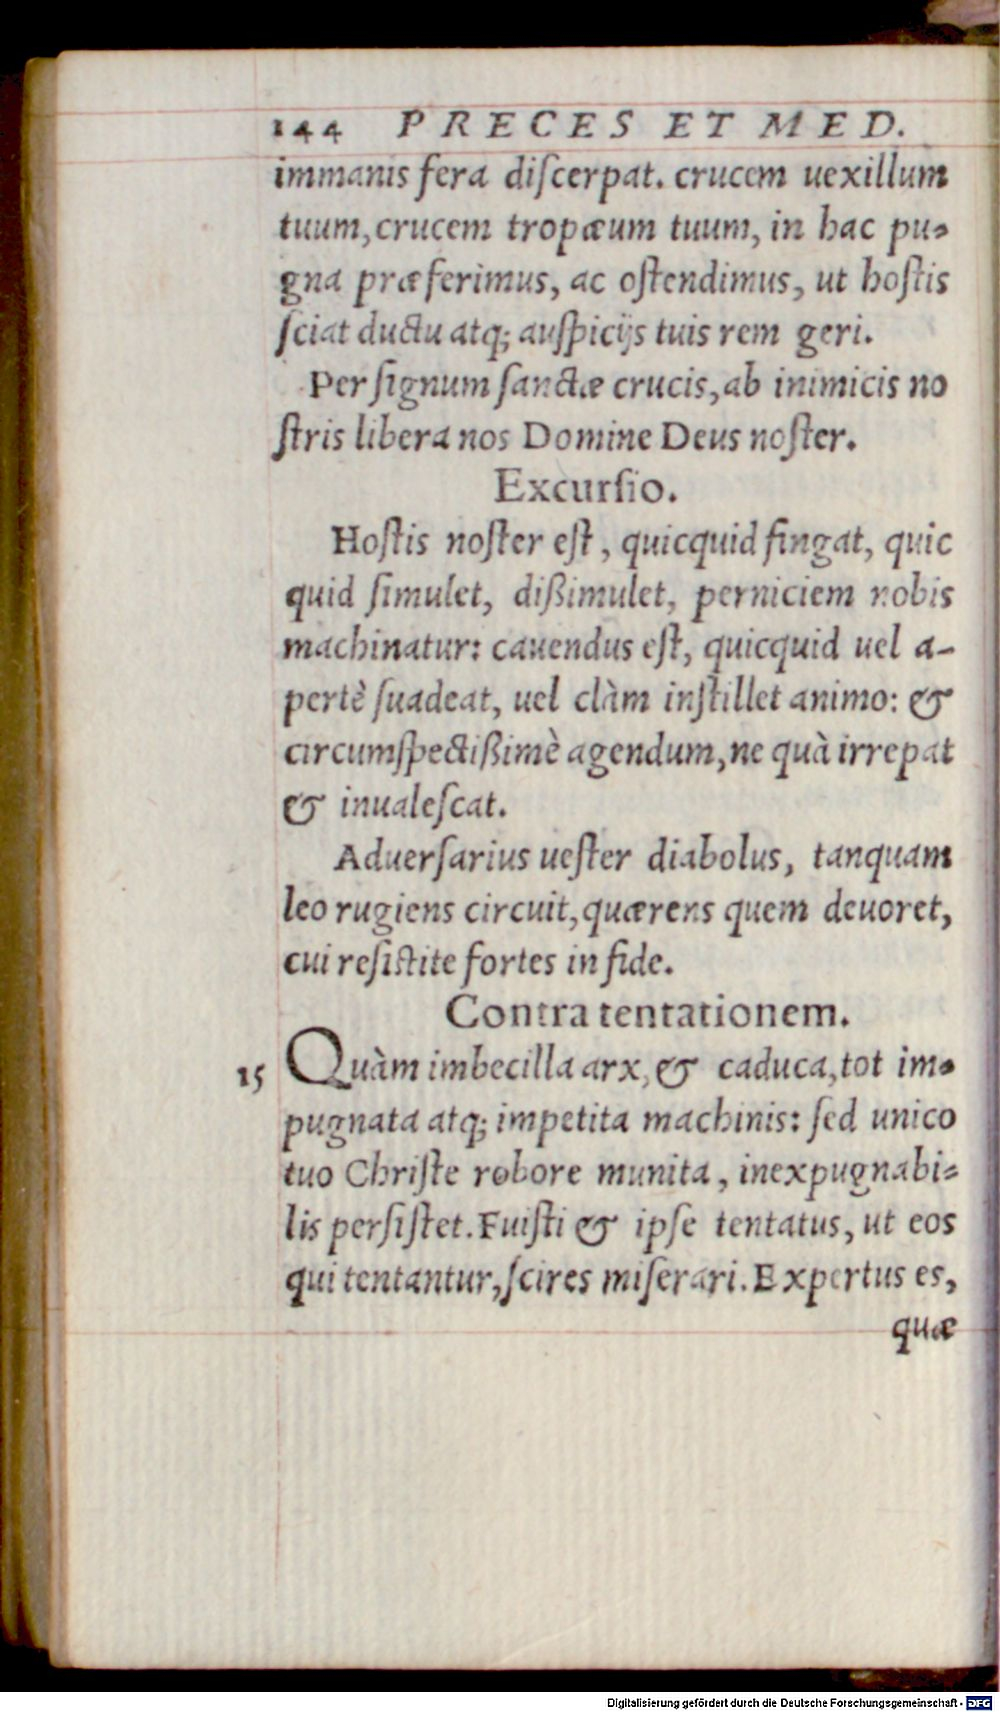 144 PRECES ET MED.
immanis fera diſcerpat. crucem uexillum
tuum, crucem tropæum tuum, in hac pu-
gna præferimus, ac oſtendimus, ut hoſtis
ſciat ductu atq; auſpicijs tuis rem geri.
Per ſignum ſanctæ crucis, ab inimicis no
ſtris libera nos Domine Deus noſter.
Excurſio.
Hoſtis noſter eſt, quicquid fingat, quic
quid ſimulet, dißimulet, perniciem nobis
machinatur: cauendus eſt, quicquid uel a-
pertè ſuadeat, uel clàm inſtillet animo: &
circumſpectißimè agendum, ne quà irrepat
& inualeſcat.
Aduerſarius ueſter diabolus, tanquam
leo rugiens circuit, quærens quem deuoret,
cui reſiſtite fortes in fide.
Contra tentationem.
15 Quàm imbecilla arx, & caduca, tot im-
pugnata atq; impetita machinis: ſed unico
tuo Chriſte robore munita, inexpugnabi-
lis perſiſtet. Fuiſti & ipſe tentatus, ut eos
qui tentantur, ſcires miſerari. Expertus es,
quæ
Digitalisierung gefördert durch die Deutsche Forschungsgemeinschaft - DFG